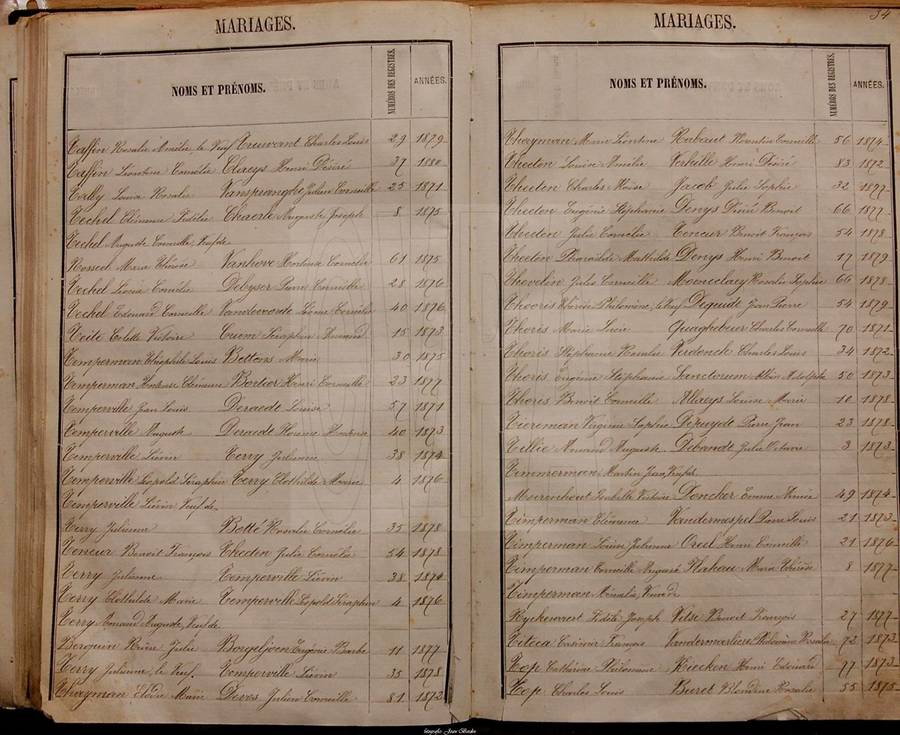 MARIAGES.
NOMS ET PRÉNOMS.
NUMÉROS DES REGISTRES.
ANNÉES.
Taffin Rosalie Amélie, le Veuf Truwant Charles Louis 29 1879
Taffin Léontine Cornélie Claeys Henri Désiré 37 1880
Tailly Louis Rosalie Julien Corneille 25 1871
Techel Clémence Charle Auguste Joseph 8 1875
Techel Auguste Corneille, Veuf de
Rossed Marie Thérèse Vanhove Hortense Cornélie 61 1875
Techel Louise Cornélie Debyser Pierre Corneille 28 1876
Techel Edouard Corneille Vandevoorde Léonie Cornélie 40 1876
Teite Colette Victoire Cuem Séraphin Amand 15 1873
Temperman Théophile Louis Bottons Marie 30 1875
Temperman Hortense Clémence Bortier Henri Corneille 23 1877
Temperville Jean Louis Deraedt Louise 57 1871
Temperville Auguste Deraedt Florence Hortense 40 1873
Temperville Liévin Terry Julienne 38 1874
Temperville Léopold Séraphin Terry Clothilde Marie 4 1876
Temperville Liévin, Veuf de
Terry Julienne Botté Rosalie Cornélie 35 1878
Teneur Benoit François Thedon Julie Cornélie 54 1878
Terry Julienne Temperville Liévin 38 1874
Terry Clothilde Marie Temperville Léopold Séraphin 4 1876
Terry Amand Auguste, Veuf de
Berquin Reine Julie Borgeljoen Eugénie Barbe 11 1877
Terry Julienne, le Veuf, Temperville Liévin 35 1878
Thagman Elodie Marie Devos Julien Corneille 81 1872
34
MARIAGES.
NOMS ET PRÉNOMS.
NUMÉROS DES REGISTRES.
ANNÉES.
Thagman Marie Léontine Rabaut Florentin Corneille 56 1874
Thedon Louise Amélie Verhille Henri Désiré 83 1872
Thedon Charles Moïse Jacob Julie Sophie 32 1877
Thedon Eugénie Stéphanie Denys Désiré Benoit 66 1877
Thedon Julie Cornélie Teneur Benoit François 54 1878
Thedon Pharaïlde Mathilde Denys Henri Benoit 17 1879
Thevelin Jules Corneille Moeneclaey Rosalie Sophie 66 1878
Thooris Thérèse Philomène, le Veuf, Deguide Jean Pierre 54 1879
Thoris Marie Lucie Quaghebeur Charles Corneille 70 1871
Thoris Stéphanie Rosalie Verdonck Charles Louis 34 1872
Thoris Eugénie Stéphanie Sanctorum Albin Adolphe 50 1873
Thoris Benoit Corneille Allaeys Louise Marie 10 1878
Tiereman Virginie Sophie Depuydt Pierre Jean 23 1878
Tillie Amand Auguste Debandt Julie Victoire 3 1873
Timmerman Martin Jean, Veuf de
Meerenhout Isabelle Victoire Doncker Emma Aimée 49 1874
Timperman Clémence Vandermespel Pierre Louis 21 1873
Timperman Louise Julienne Oreel Henri Corneille 21 1876
Timperman Corneille Plateau Marie Thérèse 8 1877
Timperman Rosalie, Veuve de
Ryckewaert Fidèle Joseph Vilse Benoit François 27 1877
Titeca Casimir François Vandermarliere Philomène Rosalie 72 1873
Top Catherine Philomène Kiecken Henri Edouard 77 1873
Top Charles Louis Buret Blondine Rosalie 55 1875